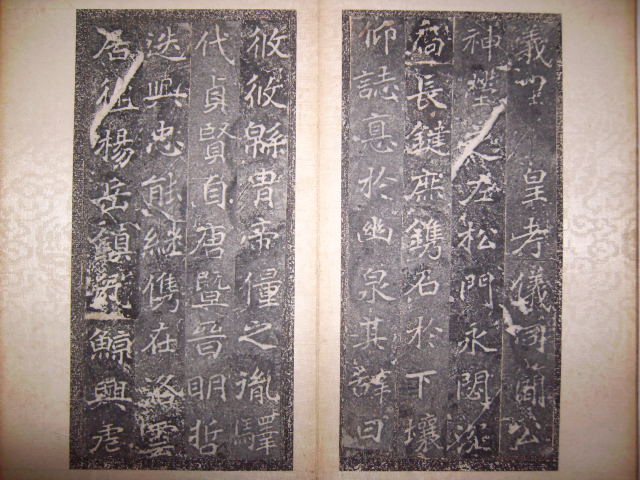 儀墅 皇考儀同簡公
神塋之左松門永閟深
扃長鍵庶鐫石於下壤
仰誌息於幽泉其辭曰
攸攸緜胄帝僮之胤驛
代貞賢自唐暨晉明哲
迭興忠能繼儁在洛雲
居徙楊岳鎮 鯨興虐